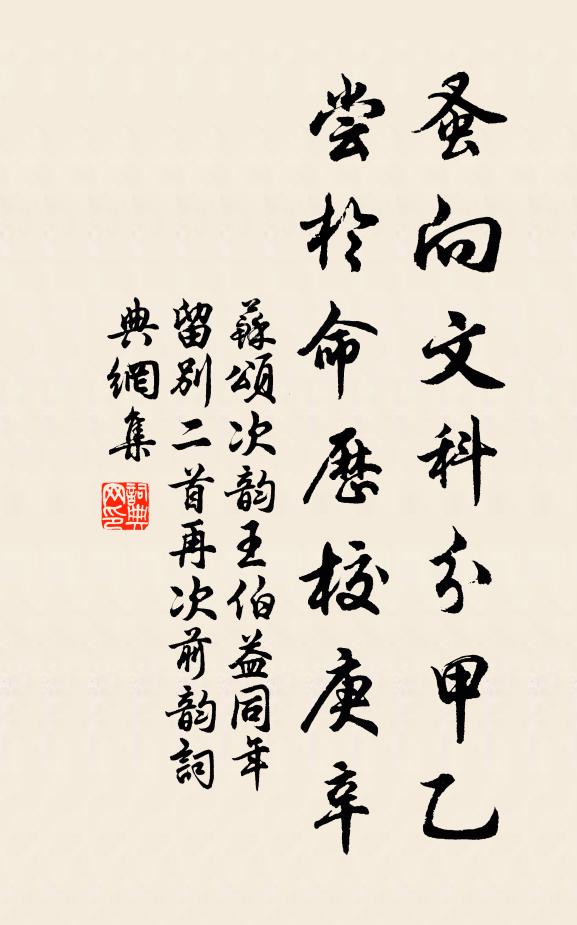 蚤向文科分甲乙
尝於命歷校庚辛
蘇頌次韵王伯益同年
留别二首再次前韵詞
典網集
詞典
网印